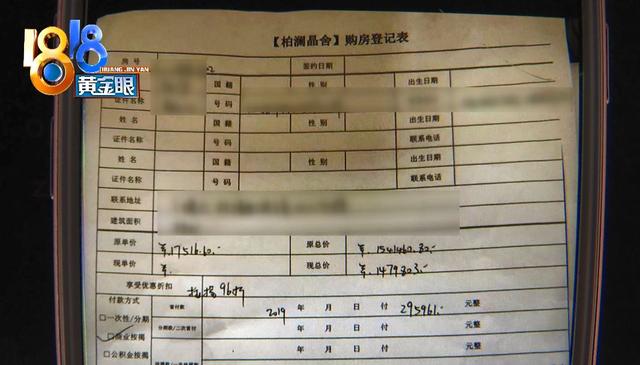 1818
HUANG JIN YAN
黄金眼
【柏澜晶舍】购房登记表
房号 签约日期
国籍 性别 出生日期
证件名称 号码
姓名 国籍 性别 出生日期
证件名称 号码 联系电话
姓名 国籍 性别 出生日期
证件名称 号码 联系电话
联系地址
建筑面积
原单价 ¥.17516.60.- 原总价 ¥.1541460.80.-
现单价 ¥. 现总价 ¥.1479803.-
享受优惠折扣 按揭96折
付款方式 首付款 2019 年 月 日 付 295961.- 元整
□一次性/分期 分期款/二次首付 年 月 日 付 元整
□商业按揭 年 月 日 付 元整
□公积金按揭